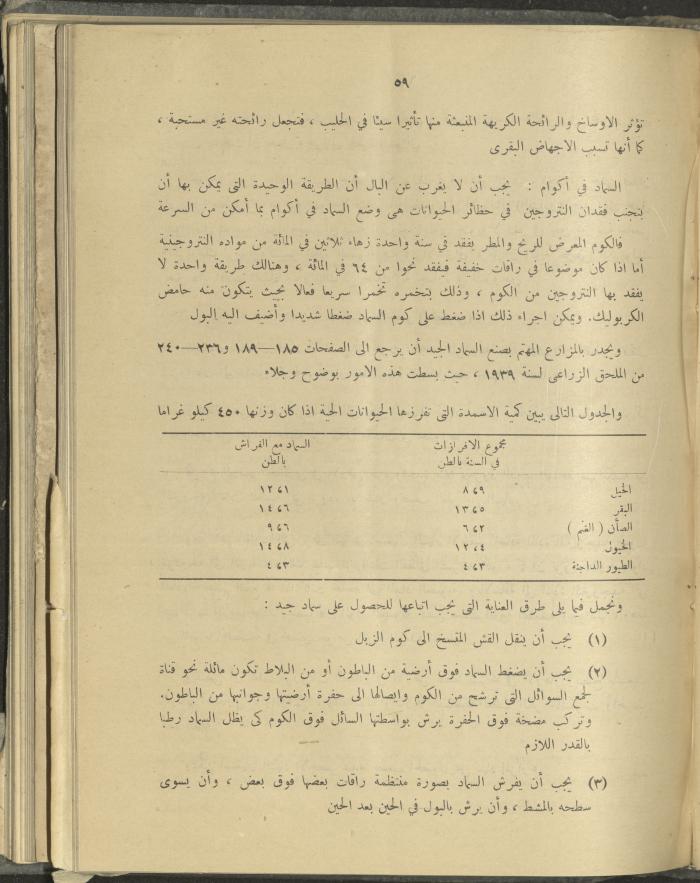 ٥٩
تؤثر الاوساخ والرائحة الكريهة المنبعثة منها تأثيرا سيئا في الحليب ، فتجعل رائحته غير مستحبة ،
كما أنها تسبب الاجهاض البقرى
السماد في أكوام : يجب أن لا يغرب عن البال أن الطريقة الوحيدة التى يمكن بها أن
يتجنب فقدان النتروجين في حظائر الحيوانات هى وضع السماد في أكوام بما أمكن من السرعة
فالكوم المعرض للريح والمطر يفقد في سنة واحدة زهاء ثلاثين في المائة من مواده النتروجينية
أما اذا كان موضوعا في راقات خفيفة فيفقد نحوا من ٦٤ في المائة ، وهنالك طريقة واحدة لا
يفقد بها النتروجين من الكوم ، وذلك بتخمره تخمرا سريعا فعالا بحيث يتكون منه حامض
الكربوليك. ويمكن اجراء ذلك اذا ضغط على كوم السماد ضغطا شديدا وأضيف اليه البول
ويجدر بالمزارع المهتم بصنع السماد الجيد أن يرجع الى الصفحات ١٨٥—١٨٩ و٢٣٦—٢٤٠
من الملحق الزراعى لسنة ١٩٣٩ ، حيث بسطت هذه الامور بوضوح وجلاء
والجدول التالى يبين كمية الاسمدة التى تفرزها الحيوانات الحية اذا كان وزنها ٤٥٠ كيلو غراما
مجموع الافرازات السماد مع الفراش
في السنة بالطن بالطن
الخيل ٨،٩ ١٢،١
البقر ١٣،٥ ١٤،٦
الضأن ( الغنم ) ٦،٢ ٩،٦
الخيول ١٢،٤ ١٤،٨
الطيور الداجنة ٤،٣ ٤،٣
ونجمل فيما يلى طرق العناية التى يجب اتباعها للحصول على سماد جيد :
(١) يجب أن ينقل القش المفسخ الى كوم الزبل
(٢) يجب أن يضغط السماد فوق أرضية من الباطون أو من البلاط تكون مائلة نحو قناة
لجمع السوائل التى ترشح من الكوم وايصالها الى حفرة أرضيتها وجوانبها من الباطون.
وتركب مضخة فوق الحفرة يرش بواسطتها السائل فوق الكوم كى يظل السماد رطبا
بالقدر اللازم
(٣) يجب أن يفرش السماد بصورة منتظمة راقات بعضها فوق بعض ، وأن يسوى
سطحه بالمشط ، وأن يرش بالبول في الحين بعد الحين